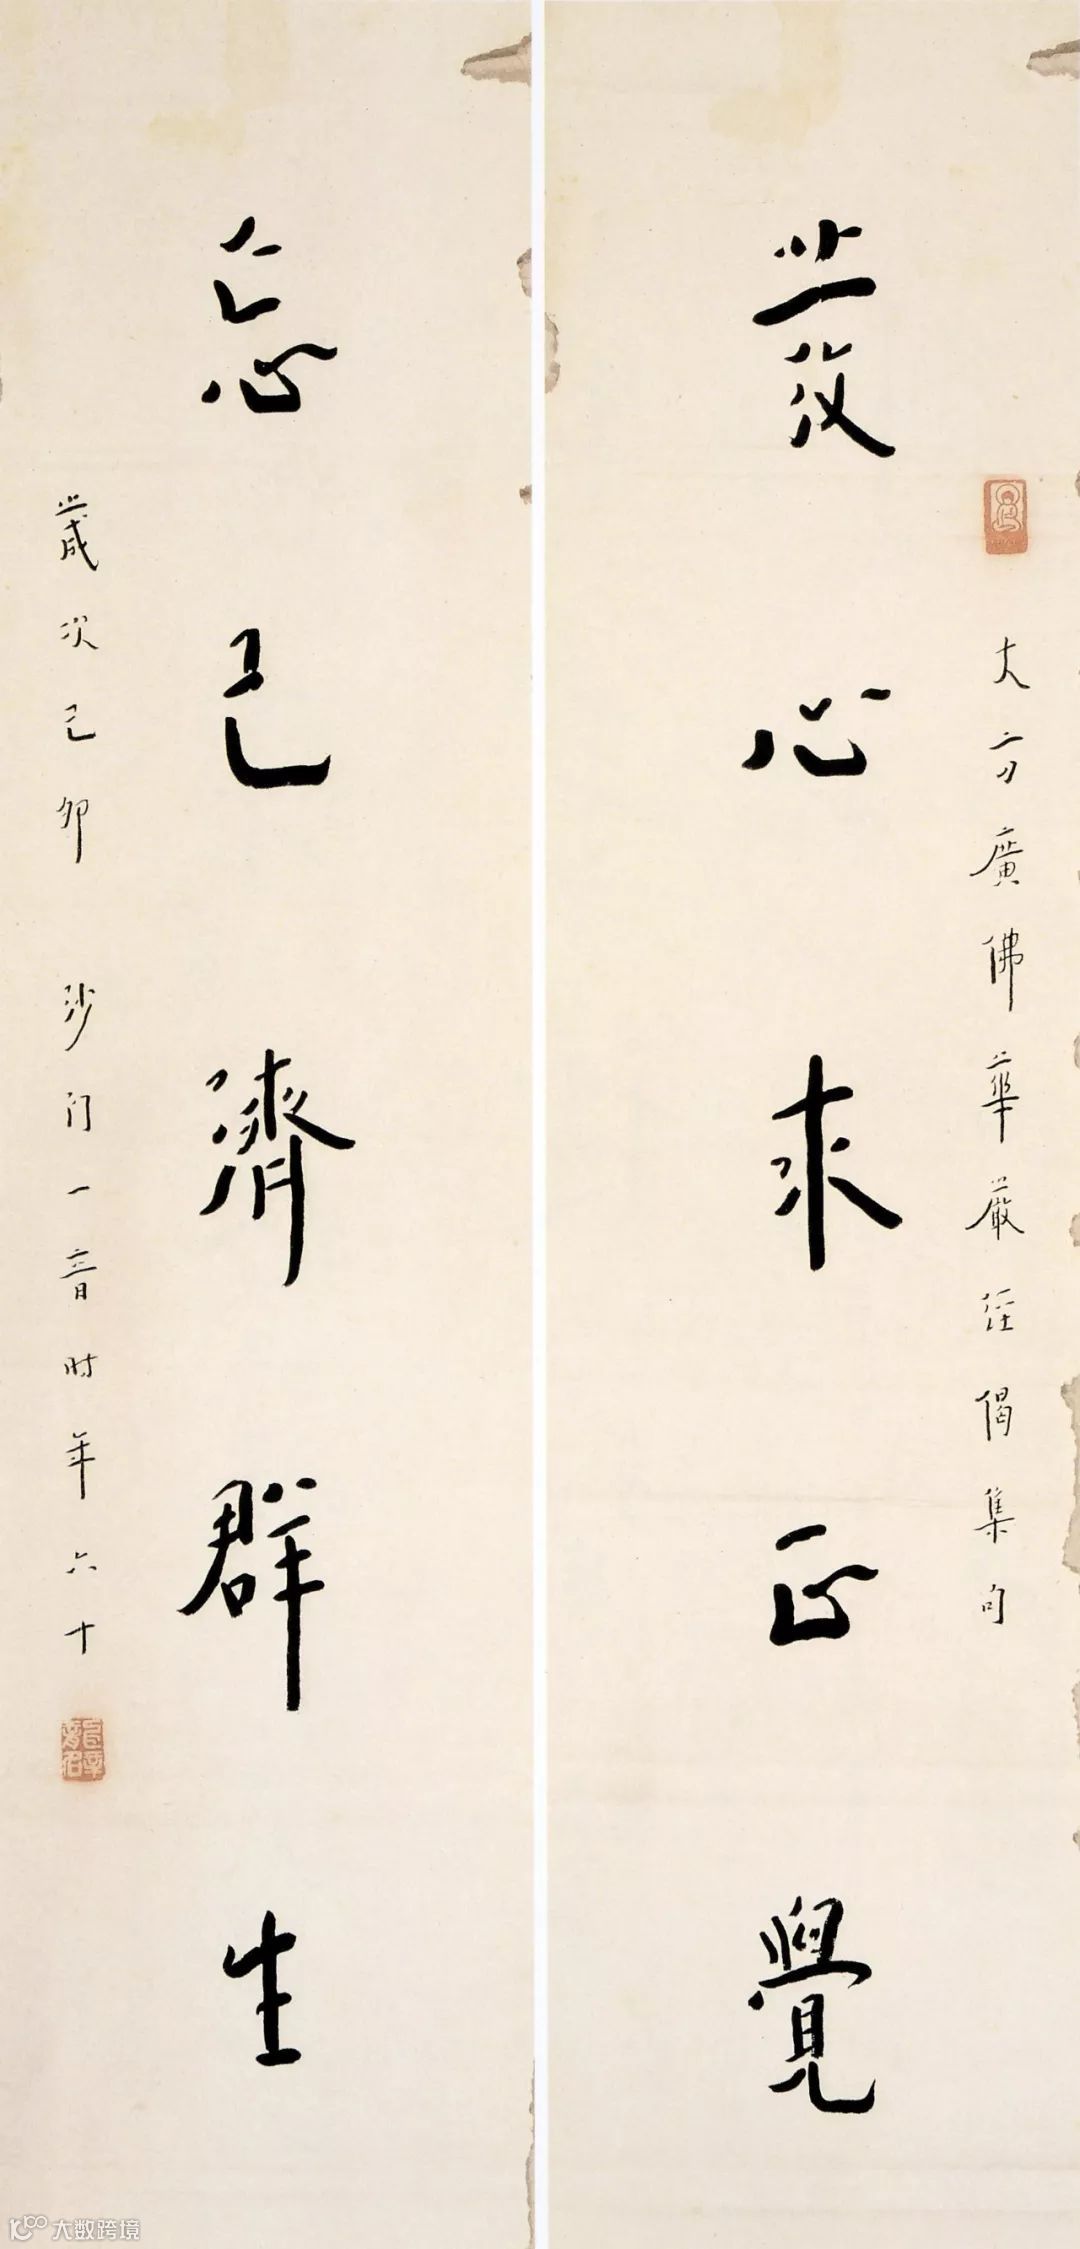 發心求正覺
大方廣佛華嚴經偈集句
忘己濟群生
歲次己卯 沙门一音时年六十
大数跨境